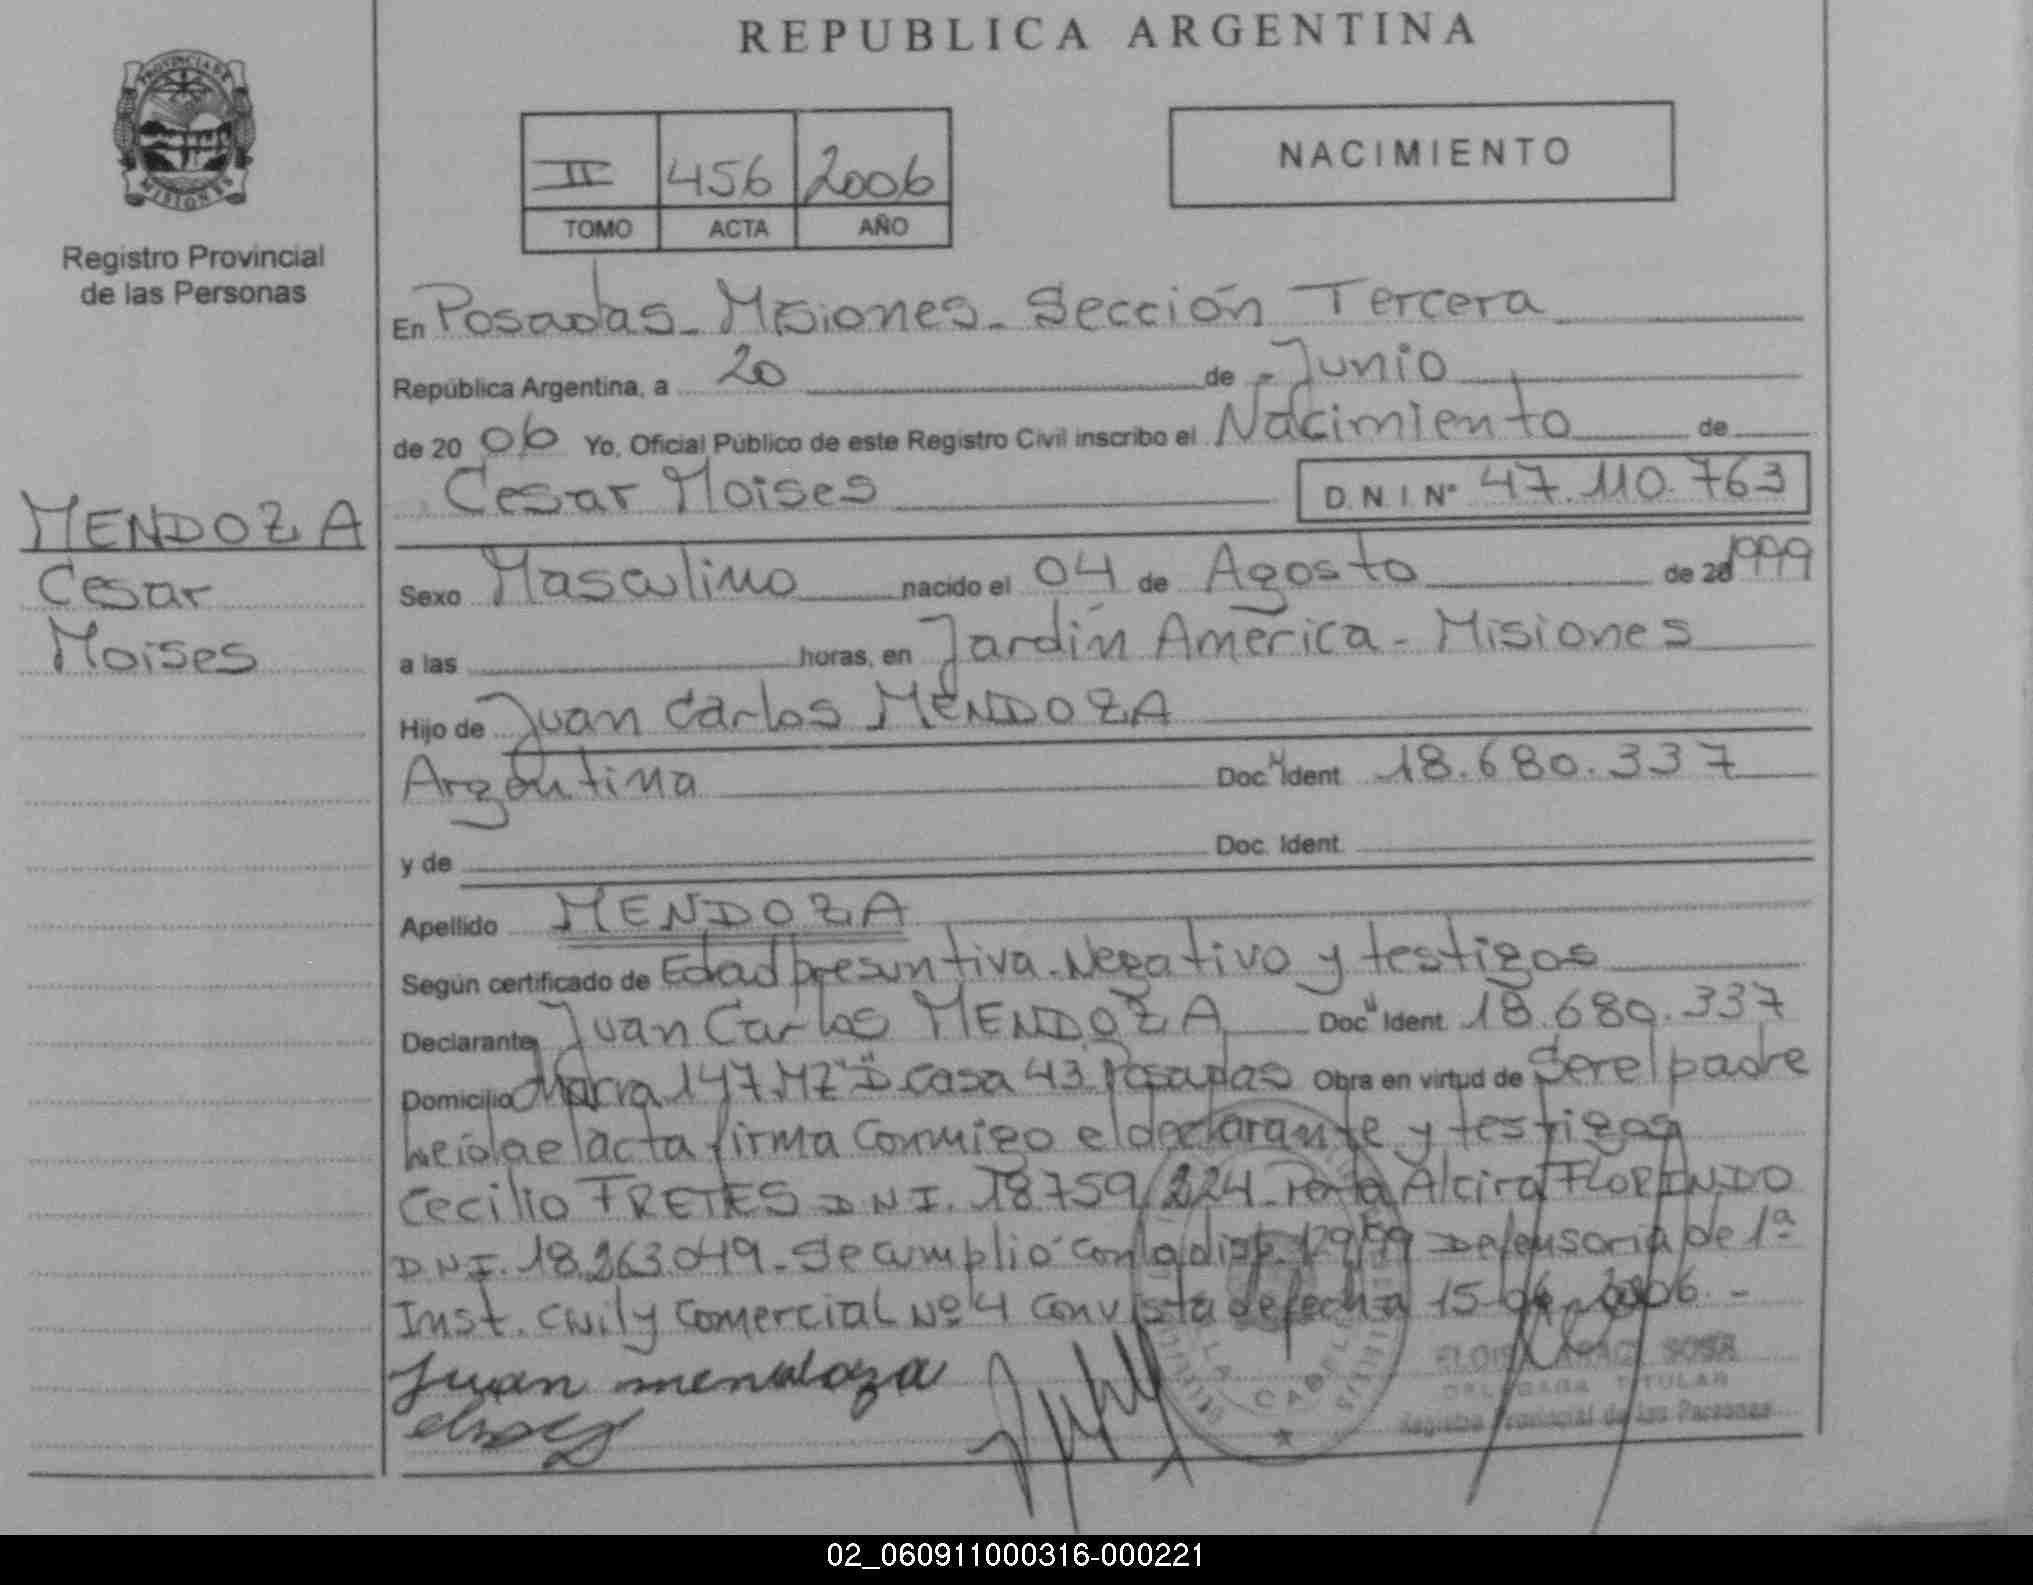 REPUBLICA ARGENTINA
PROVINCIA DE
MISIONES
Registro Provincial
de las Personas
II 456 2006
TOMO ACTA AÑO
NACIMIENTO
En Posadas - Misiones - Sección Tercera
República Argentina, a 20 de Junio
de 20 06 Yo, Oficial Público de este Registro Civil inscribo el Nacimiento de
Cesar Moises D.N.I Nº 47.110.763
MENDOZA
Cesar
Moises
Sexo Masculino nacido el 04 de Agosto de 20 1999
a las horas, en Jardín América - Misiones
Hijo de Juan Carlos MENDOZA
Argentina Doc. Ident 18.680.337
y de Doc. Ident.
Apellido MENDOZA
Según certificado de Edad presuntiva - Negativo y testigos
Declarante Juan Carlos MENDOZA Doc. Ident. 18.680.337
Domicilio Chacra 147 MZ "D" Casa 43 Posadas Obra en virtud de Ser el padre
Leída el acta firma conmigo el declarante y testigos
Cecilio FRETES DNI. 18759224 - Alcira FLORINDO
DNI. 18.263.049 - Se cumplió con la disp. 129/99 Defensoria de 1ª
Inst. Civil y Comercial Nº 4 con vista de fecha 15-06-2006. -
Juan mendoza
SOSA
TITULAR
Registro Provincial de las Personas
02_060911000316-000221